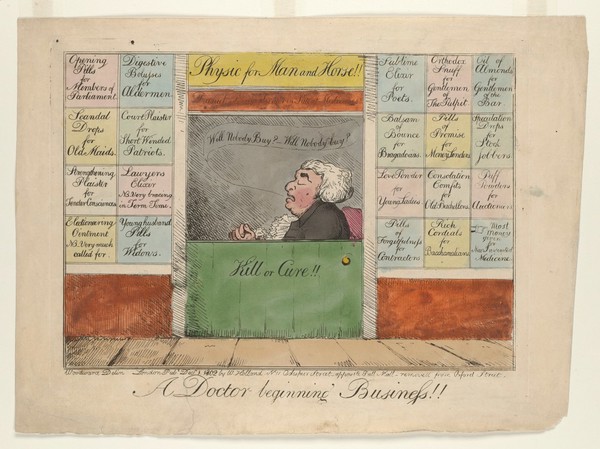 Opening
Pills
for
Members of
Parliament.
Digestive
Boluses
for
Aldermen.
Scandal
Drops
for
Old Maids.
Court Plaister
for
Short Winded
Patriots.
Strengthening
Plaister
for
Tender Consciences
Lawyers
Elixir
NB. Very bracing
in Term Time.
Electioneering
Ointment
NB. Very much
called for.
Young husband
Pills
for
Widows.
Physic for Man and Horse!!
Will Nobody Buy? Will Nobody buy?
Kill or Cure!!
Sublime
Elixir
for
Poets.
Orthodox
Snuff
for
Gentlemen
of
The Pulpit
Oil of
Almonds
for
Gentlemen
of the
Bar.
Balsam
of
Bounce
for
Bragadocios.
Pills
of
Promise
for
Money Lenders
Speculation
Drops
for
Stock
jobbers.
Love Powder
for
Young Ladies
Consolation
Comfits
for
Old Batchellors.
Puff
Powders
for
Auctioneers
Pills
of
Forgetfulness
for
Contractors
Rich
Cordials
for
Bacchanalians
Most
money
given
for
New Invented
Medicines.
Woodward Delin. London Pub. 1802 by W. Holland No 11 Cockspur Street opposite Pall Mall removed from Oxford Street.
A Doctor beginning Business!!